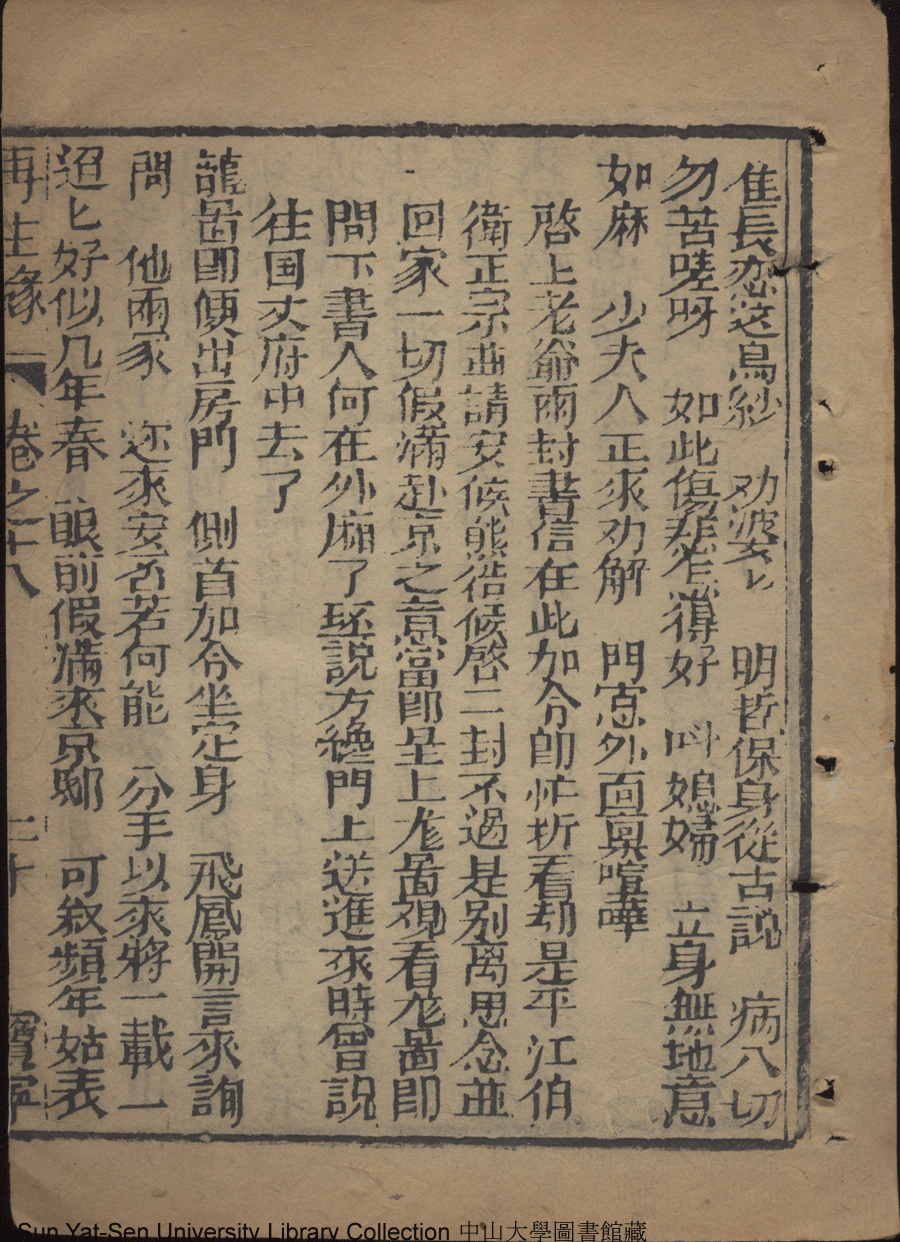 隹長恋这烏紗　劝婆〻　明哲保身從古説　病人切
勿苦㗌呀　如此傷悲怎得好　叫媳婦　立身無地意
如麻　少夫人正來劝解　門窓外面鬧喧嘩
啓上老爺兩封書信在此加令即忙折看却是平江伯
衛正宗並請安候熊從候啓二封不過是别离思念並
回家一切假滿赴京之意當即呈上尨啚观看尨啚即
問下書人何在外廂了环説方纔門上送進來時曾説
往国丈府中去了
龍啚即便出房門　側首加令坐定身　飛鳳開言來詢
問　他兩家　迩來安否若何能　分手以來將一載　一
迢〻好似几年春　眼前假滿來京邸　可叙頻年姑表
再生緣　卷之十八　二十　寳寧
Sun Yat-Sen University Library Collection 中山大學圖書館藏